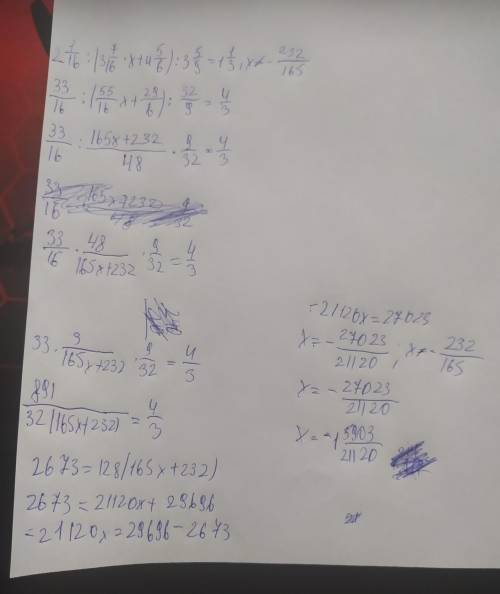 2 1/16 : (3 7/16 · x + 4 5/6) : 3 5/9 = 1 1/3, x ≠ - 232/165
33/16 : (55/16 x + 29/6) : 32/9 = 4/3
33/16 : 165x+232/48 · 9/32 = 4/3
33/16 · 48/165x+232 · 9/32 = 4/3
33 · 3/165x+232 · 9/32 = 4/3
891/32(165x+232) = 4/3
2673 = 128(165x+232)
2673 = 21120x + 29696
= 21120x = 29696 - 2673
= 21120x = 27023
x = - 27023/21120 ; x ≠ - 232/165
x = - 27023/21120
x = -1 5903/21120